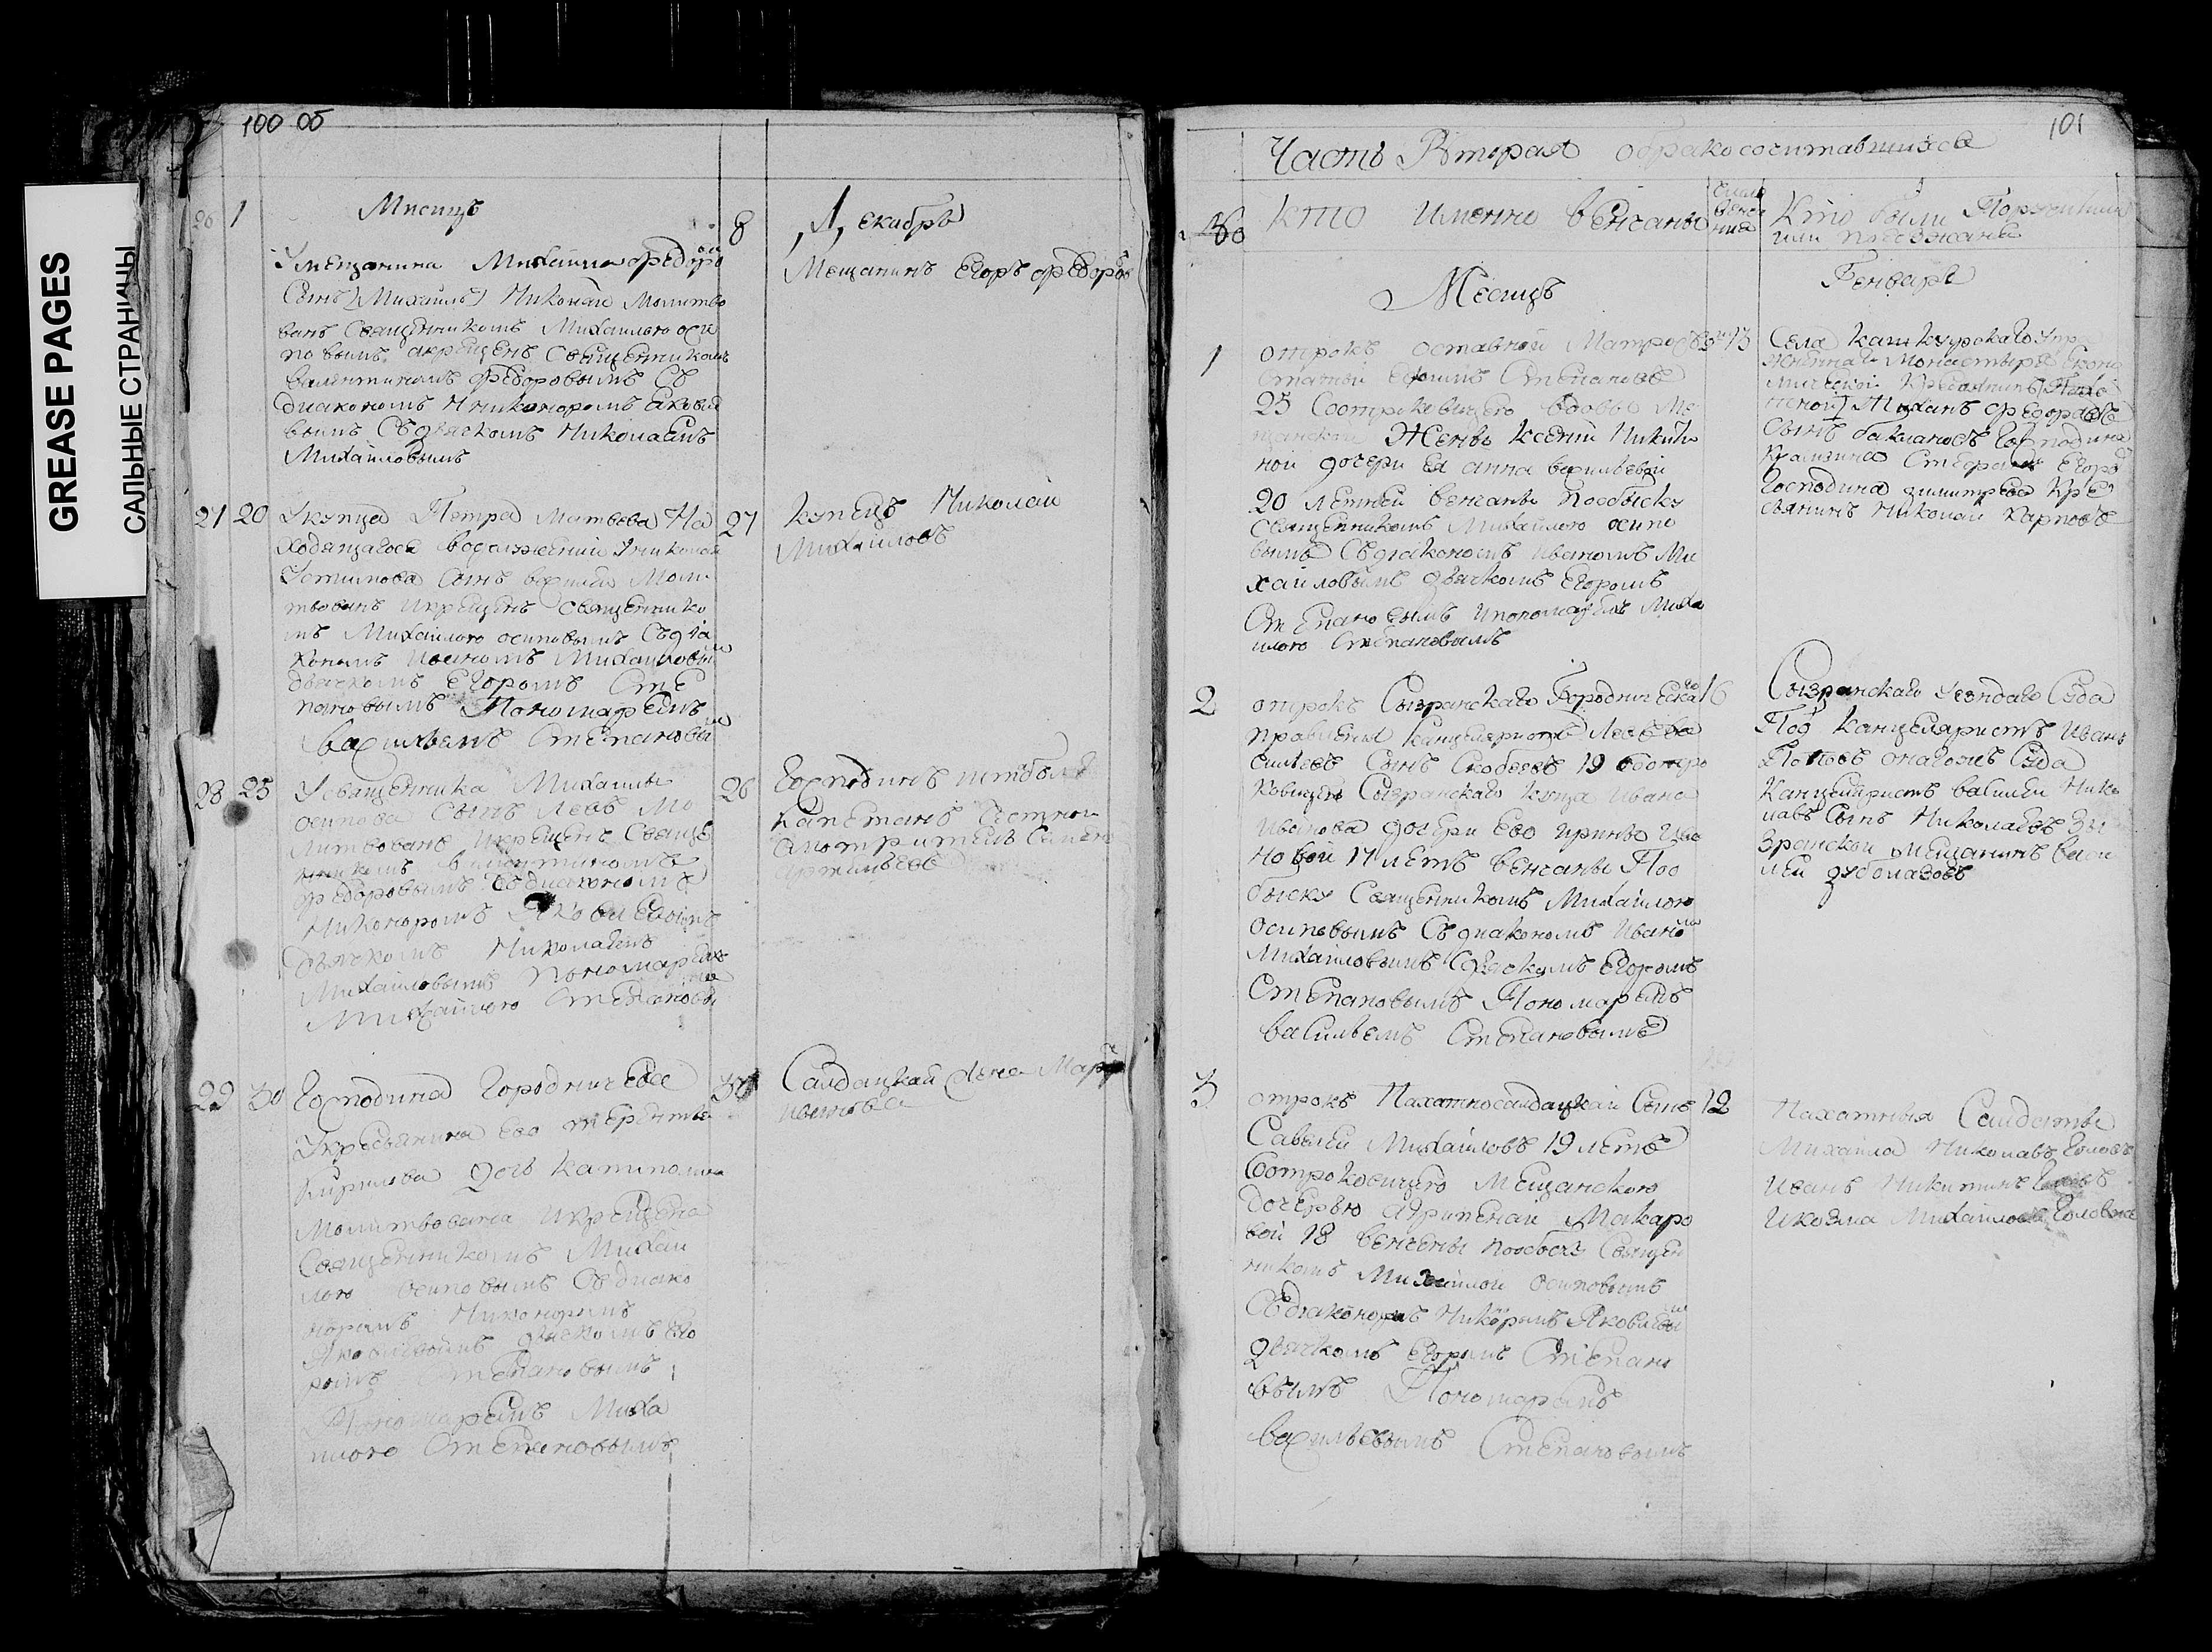 GREASE PAGES
САЛЬНЫЕ СТРАНИЦЫ
100 об
26 1 Месицъ 8 Декабрь
Умещанина Михаила Федоро
Сынъ Михаилъ Николаи Молитво
ванъ Священникомъ Михаилою оси
повымъ, акрещенъ Священникомъ
валентиномъ Федоровымъ Съ
диакономъ Никонором
вымъ Съ дьяскомъ Николаемъ
Михаиловымъ
Мещанинъ Егоръ Федоровъ
27 20 Укупца Петра Матвева На
ходящагося
Устинова Сынъ василеи Моли
твованъ икрещенъ священнико
мъ Михаилою осиповымъ Съдиа
кономъ иваномъ Михаиловым
дьяскомъ Егоромъ Сте
пановымъ Пономаремъ
василъемъ Степановы
27 купецъ Николаи
Михаиловъ
28 25 Усвященника Михаилы
осипова Сынъ Левъ Мо
литвованъ икрещенъ Свяще
никомъ валентиномъ
Федоровымъ Съдиакономъ
Никоноромъ Яковлевымъ
дьяскомъ Николаемъ
Михаиловымъ пономаремъ
Михаилою Степановы
26 Господинъ штабъ
капетанъ
смотритель
29 30 Господина Городничева
Укресьянина Ево терентья
Кирилова дочь
Молитвована икрещена
Священникомъ Михаи
лою осиповымъ Съдиако
номъ Никоноромъ
Яковлевымъ дьяскомъ Его
ромъ Степановымъ
Пономаремъ Миха
илою Степановымъ
30 Салдацкая жена Марья
иванова
101
Часть Вторая обракосочитавшихся
Кто именно венчаны
Число венча ния
Кто были Поручители
или поезжаня
Месицъ
Генваря
1 отрокъ оставной Матросъ 13
Ефимъ Степановъ
25 Соотроковицею вдовы Ме
щанской Жены Ксении Никити
ной дочери Ея анна васильевой
20 летней венчаны пообыску
Священникомъ Михаилою осипо
вымъ Съдиакономъ иваномъ Ми
хаиловымъ дьячкомъ Егоромъ
Степановымъ ипономаремъ Миха
илою Степановымъ
Села кашкурскаго
Монастыря Еконо
мической Кресьянинъ
Михаилъ Федоровъ
Сынъ баклановъ Господина
Егоро
Господина димитрева Кре
сьянинъ Николаи Карповъ
2 отрокъ Сызранскаго Городническа 16
правления Канцеляристъ Левъ Ва
сильевъ Сынъ Скобеевъ 19 Соотро
ковицею Сызранскаго купца Ивана
Иванова дочери Ево ирины Ива
новой 17 летъ венчаны Поо
быску Священникомъ Михаилою
Осиповымъ Съдиакономъ Ивано
Михаиловымъ Сдьяскомъ Егоромъ
Степановымъ Пономаремъ
васильемъ Степановымъ
Сызранскаго уезндаго Суда
Под Канцеляристъ Иванъ
Поповъ онагожъ Суда
Канцеляристъ василеи Нико
лавъ Сынъ Николаевъ Сы
зранской мещанинъ васи
леи дубомазовъ
3 отрокъ Пахатносалдацкай Сынъ 12
Савелеи Михаиловъ 19 летъ
Соотроковицею Мещанскою
дочерью агрипеной Макаро
вой 18 венчены пообыску Священ
никомъ Михаилой осиповымъ
Съдиакономъ Никоромъ Яковлевы
дьячкомъ Егоромъ Степано
вымъ Пономаремъ
васильевымъ Степановымъ
Пахатныя Салдаты
Михаила Николавъ Головъ
Иванъ Никитинъ
Икозма Михаиловъ